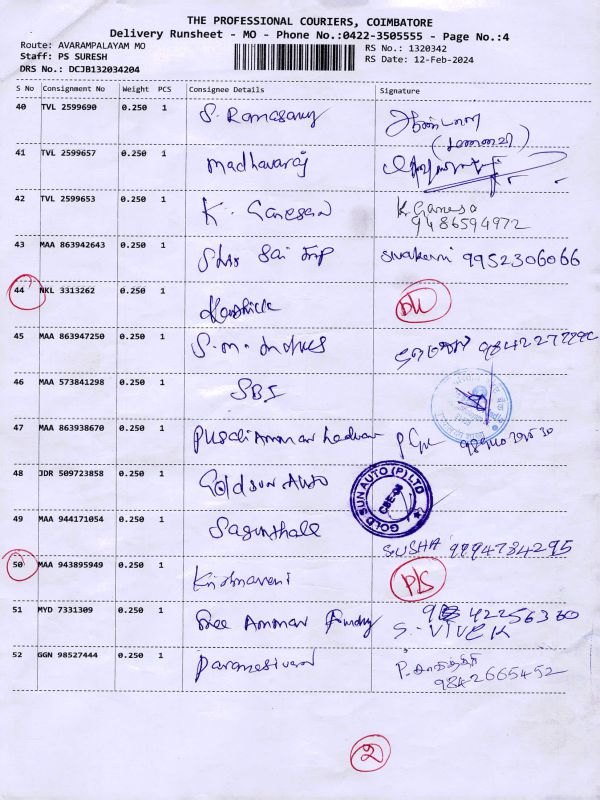 THE PROFESSIONAL COURIERS, COIMBATORE
Delivery Runsheet - MO - Phone No.:0422-3505555 - Page No.:4
Route: AVARAMPALAYAM MO
RS No.: 1320342
Staff: PS SURESH
RS Date: 12-Feb-2024
DRS No.: DCJB132034204
S No Consignment No Weight PCS Consignee Details Signature
40 TVL 2599690 0.250 1 S. Ramasamy
41 TVL 2599657 0.250 1 Madhavaraj
42 TVL 2599653 0.250 1 K. Ganesan K. Ganesa
9486594972
43 MAA 863942643 0.250 1 Shri Sai Imp 9952306066
44 NKL 3313262 0.250 1
45 MAA 863947250 0.250 1 S.M.
46 MAA 573841298 0.250 1 SBI
47 MAA 863938670 0.250 1
48 JDR 509723858 0.250 1 Gold sun Auto GOLD SUN AUTO (P) LTD
49 MAA 944171054 0.250 1 SUSHA 9994784295
50 MAA 943895949 0.250 1 Krishnaveni P/S
51 MYD 7331309 0.250 1 Sree Amman
S. VIVEK
52 GGN 98527444 0.250 1 Paramesivan
9842665452
2